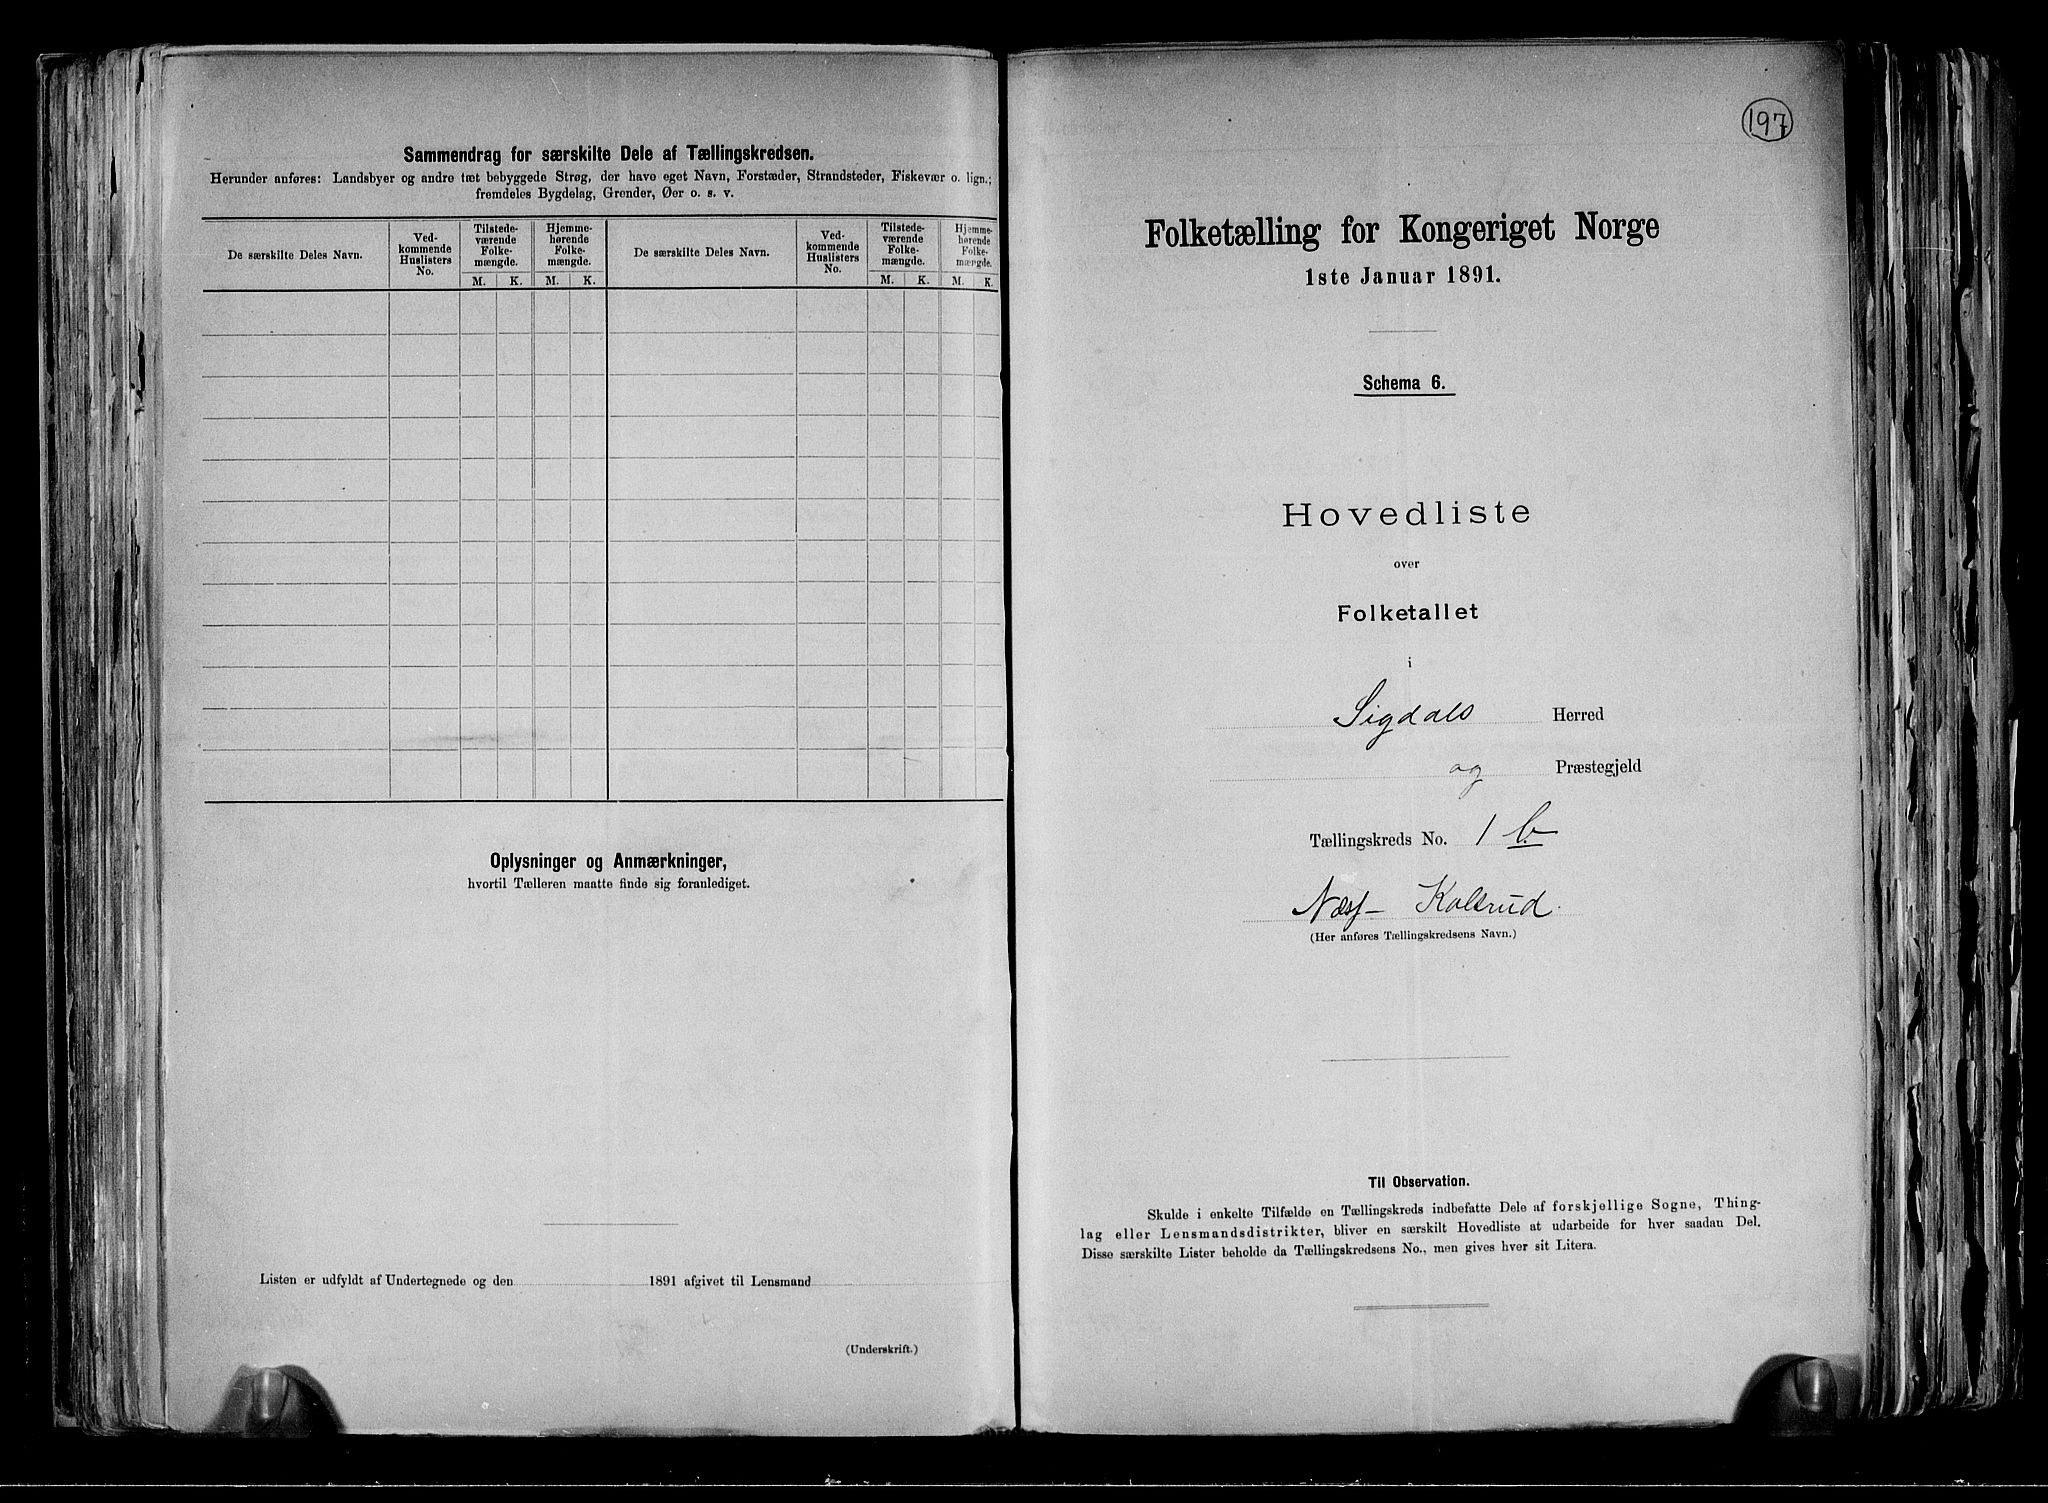 Sammendrag for særskilte Dele af Tællingskredsen.
Herunder anføres: Landsbyer og andre tæt bebyggede Strøg, der have eget Navn, Forstæder, Strandsteder, Fiskevær o. lign.;
fremdeles Bygdelag, Grender, Øer o. s. v.
De særskilte Deles Navn.
Ved-
kommende
Huslisters
No.
Tilstede-
værende
Folke-
mængde.
M. K.
Hjemme-
hørende
Folke-
mængde.
M. K.
De særskilte Deles Navn.
Ved-
kommende
Huslisters
No.
Tilstede-
værende
Folke-
mængde.
M. K.
Hjemme-
hørende
Folke-
mængde.
M. K.
Oplysninger og Anmærkninger,
hvortil Tælleren maatte finde sig foranlediget.
Listen er udfyldt af Undertegnede og den 1891 afgivet til Lensmand
(Underskrift.)
197
Folketælling for Kongeriget Norge
1ste Januar 1891.
Schema 6.
Hovedliste
over
Folketallet
i
Sigdals Herred
og Præstegjeld
Tællingskreds No. 1 b.
Næss- Kolsrud.
(Her anføres Tællingskredsens Navn.)
Til Observation.
Skulde i enkelte Tilfælde en Tællingskreds indbefatte Dele af forskjellige Sogne, Thing-
lag eller Lensmandsdistrikter, bliver en særskilt Hovedliste at udarbeide for hver saadan Del.
Disse særskilte Lister beholde da Tællingskredsens No., men gives hver sit Litera.